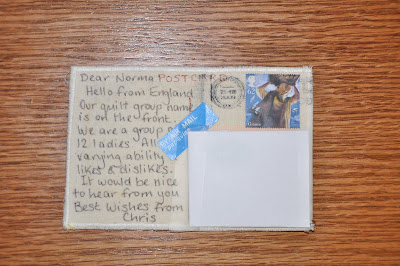 Dear Norma POSTCARD
Hello from England
Our quilt group name
is on the front.
We are a group of
12 ladies All
varying ability
likes & dislikes.
It would be nice
to hear from you
Best Wishes from
Chris
BY AIR MAIL